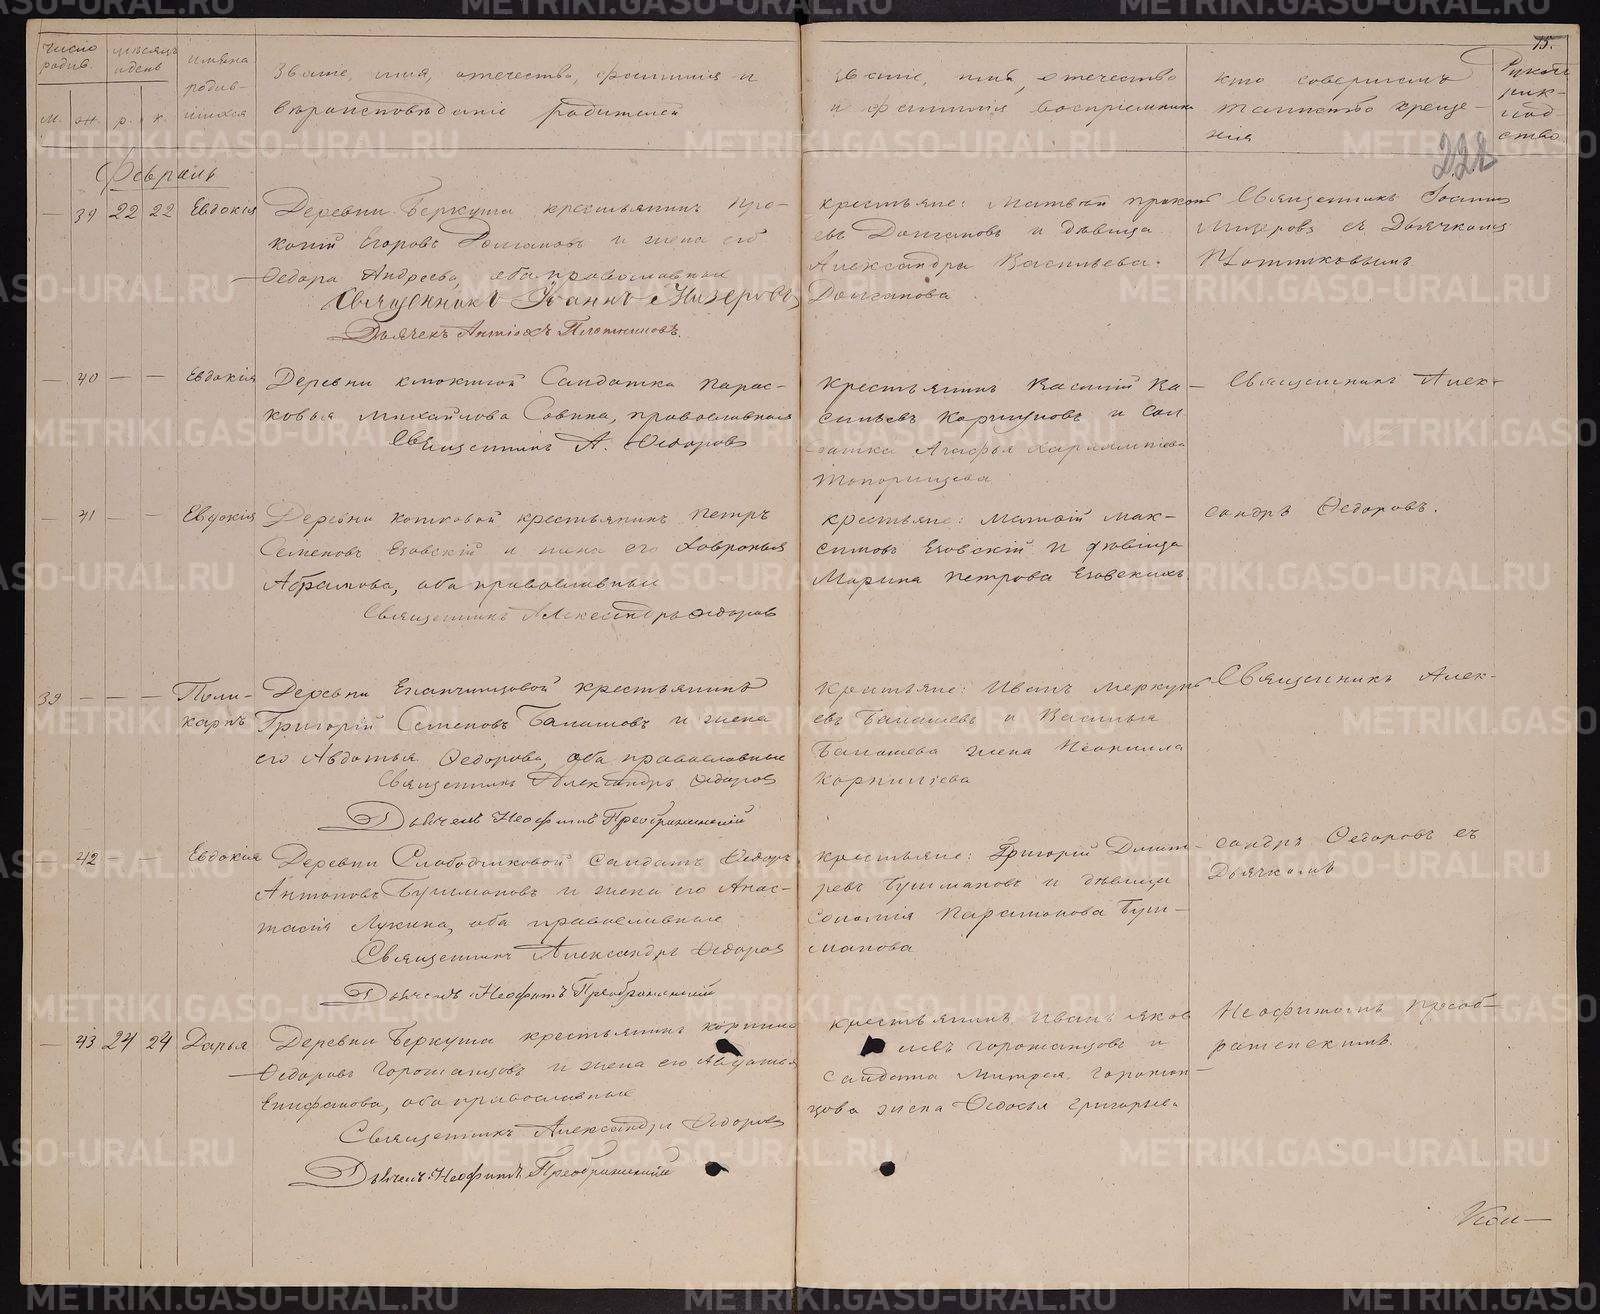 15.
222
число родив.
мѣсяцъ и день
имена родив-шихся
Званіе, имя, отечество, фамилія и
вѣроисповѣданіе родителей
Званіе, имя, отечество
и фамилія воспріемника
кто совершалъ
таинство креще-
нія
Рукоп
рик-
лад-
ство
м. ж. р. к.
Февраль
— 39 22 22 Евдокія
Деревни Беркута крестьянинъ Про-
копій Егоровъ Долгановъ и жена его
Ѳедора Андреева, оба православные
Священникъ Іоаннъ Мизеровъ
Дьячекъ Антіохъ Плотниковъ.
крестьяне: Матвей Прокоп
евъ Долгановъ и дѣвица
Александра Васильева
Долганова
Священникъ Іоаннъ
Мизеровъ съ Дьячкомъ
Плотниковымъ
— 40 — — Евдокія
Деревни Солдатка Парас-
ковья Михайлова Савина, православная
Священникъ А. Ѳедоровъ
крестьянинъ Василій Ва-
сильевъ и сол
датка Агафья Харлампіева
Топорищева
Священникъ Алек-
— 41 — — Евдокія
Деревни крестьянинъ Петръ
Семеновъ Езовскій и жена его Хавронья
Абрамова, оба православные
Священникъ Александръ Ѳедоровъ
крестьяне: Матвій Мак-
симовъ Езовскій и дѣвица
Марина Петрова Езовскихъ
сандръ Ѳедоровъ.
39 — — — Поли-
карпъ
Деревни Епанчинцовой крестьянинъ
Григорій Семеновъ Балашовъ и жена
его Авдотья Ѳедорова, оба православные
Священникъ Александръ Ѳедоровъ
Дьячекъ Неофитъ Преображенскій
Крестьяне: Иванъ Меркурь
евъ Балашевъ и Василья
Балашева жена Неонилла
Корниліева
Священникъ Алек-
— 42 — — Евдокія
Деревни Слободчиковой солдатъ Ѳедоръ
Антоновъ Бушмановъ и жена его Анас-
тасія Лукина, оба православные
Священникъ Александръ Ѳедоровъ
Дьячекъ Неофитъ Преображенскій
крестьяне: Григорій Дмит-
ревъ Бушмановъ и дѣвица
Парамонова Буш-
манова
сандръ Ѳедоровъ съ
Дьячкомъ
— 43 24 24 Дарья
Деревни Беркута крестьянинъ Корнило
Ѳедоровъ Горожанцовъ и жена его Авдотья
Епифанова, оба православные
Священникъ Александръ Ѳедоровъ
Дьячекъ Неофитъ Преображенскій
крестьянинъ Иванъ Яков
левъ Горожанцовъ и
солдата Митрея Горожан-
цова жена Ѳедосья Григорьева
Неофитомъ Преоб-
раженскимъ.
METRIKI.GASO-URAL.RU